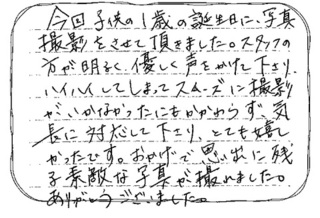 今回子供の1歳の誕生日に、写真
撮影をさせて頂きました。スタッフの
方が明るく、優しく声をかけて下さり、
ハイハイしてしまってスムーズに撮影
がいかなかったにもかかわらず、気
長に対応して下さり、とても嬉し
かったです。おかげで思い出に残
る素敵な写真が撮れました。
ありがとうございました。